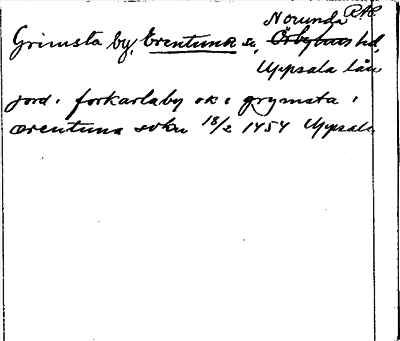 Norunda RAP.
Grimsta by, Erentuna sn, Örbyhus hd,
Uppsala län
jord i forkarlaby ok i grymsta i
ærentuna sokn 18/2 1454 Uppsala